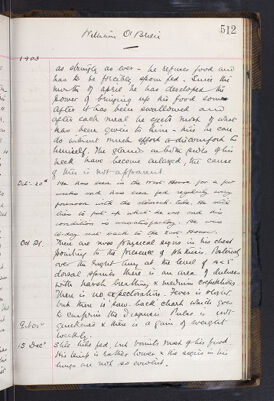 512
William O'Brien
1903
as strongly as ever - he refuses food and
has to be forcibly spoon fed. Since the
month of April he has developed the
power of bringing up his food some
after it has been swallowed and
after each meal he ejects most of what
has been given to him - this he can
do without much effort or discomfort to
himself. The glands on both sides of his
neck have become enlarged, the cause
of this is not apparent.
Oct. 20th He has been in the West House for a few
weeks and has been fed regularly every
with the stomach tube. He
condition is unsatisfactory. He was
to-day sent back to the East House.
Oct 21. There are now physical signs in his chest
pointing to the presence of phthisis. Posteriorly
over the right lung at the level of 4 & 5
dorsal spines there is an area of dulness
with harsh breathing & medium crepitations
There is no expectoration. Fever is slight
but there is four hourly chart which goes
to confirm the diagnosis. Pulse is not
quickened & there is a gain of weight
weekly.
15 Decr Still tube fed, but vomits most of his food.
His lung is rather lower & the signs in his
lungs are not so evident.